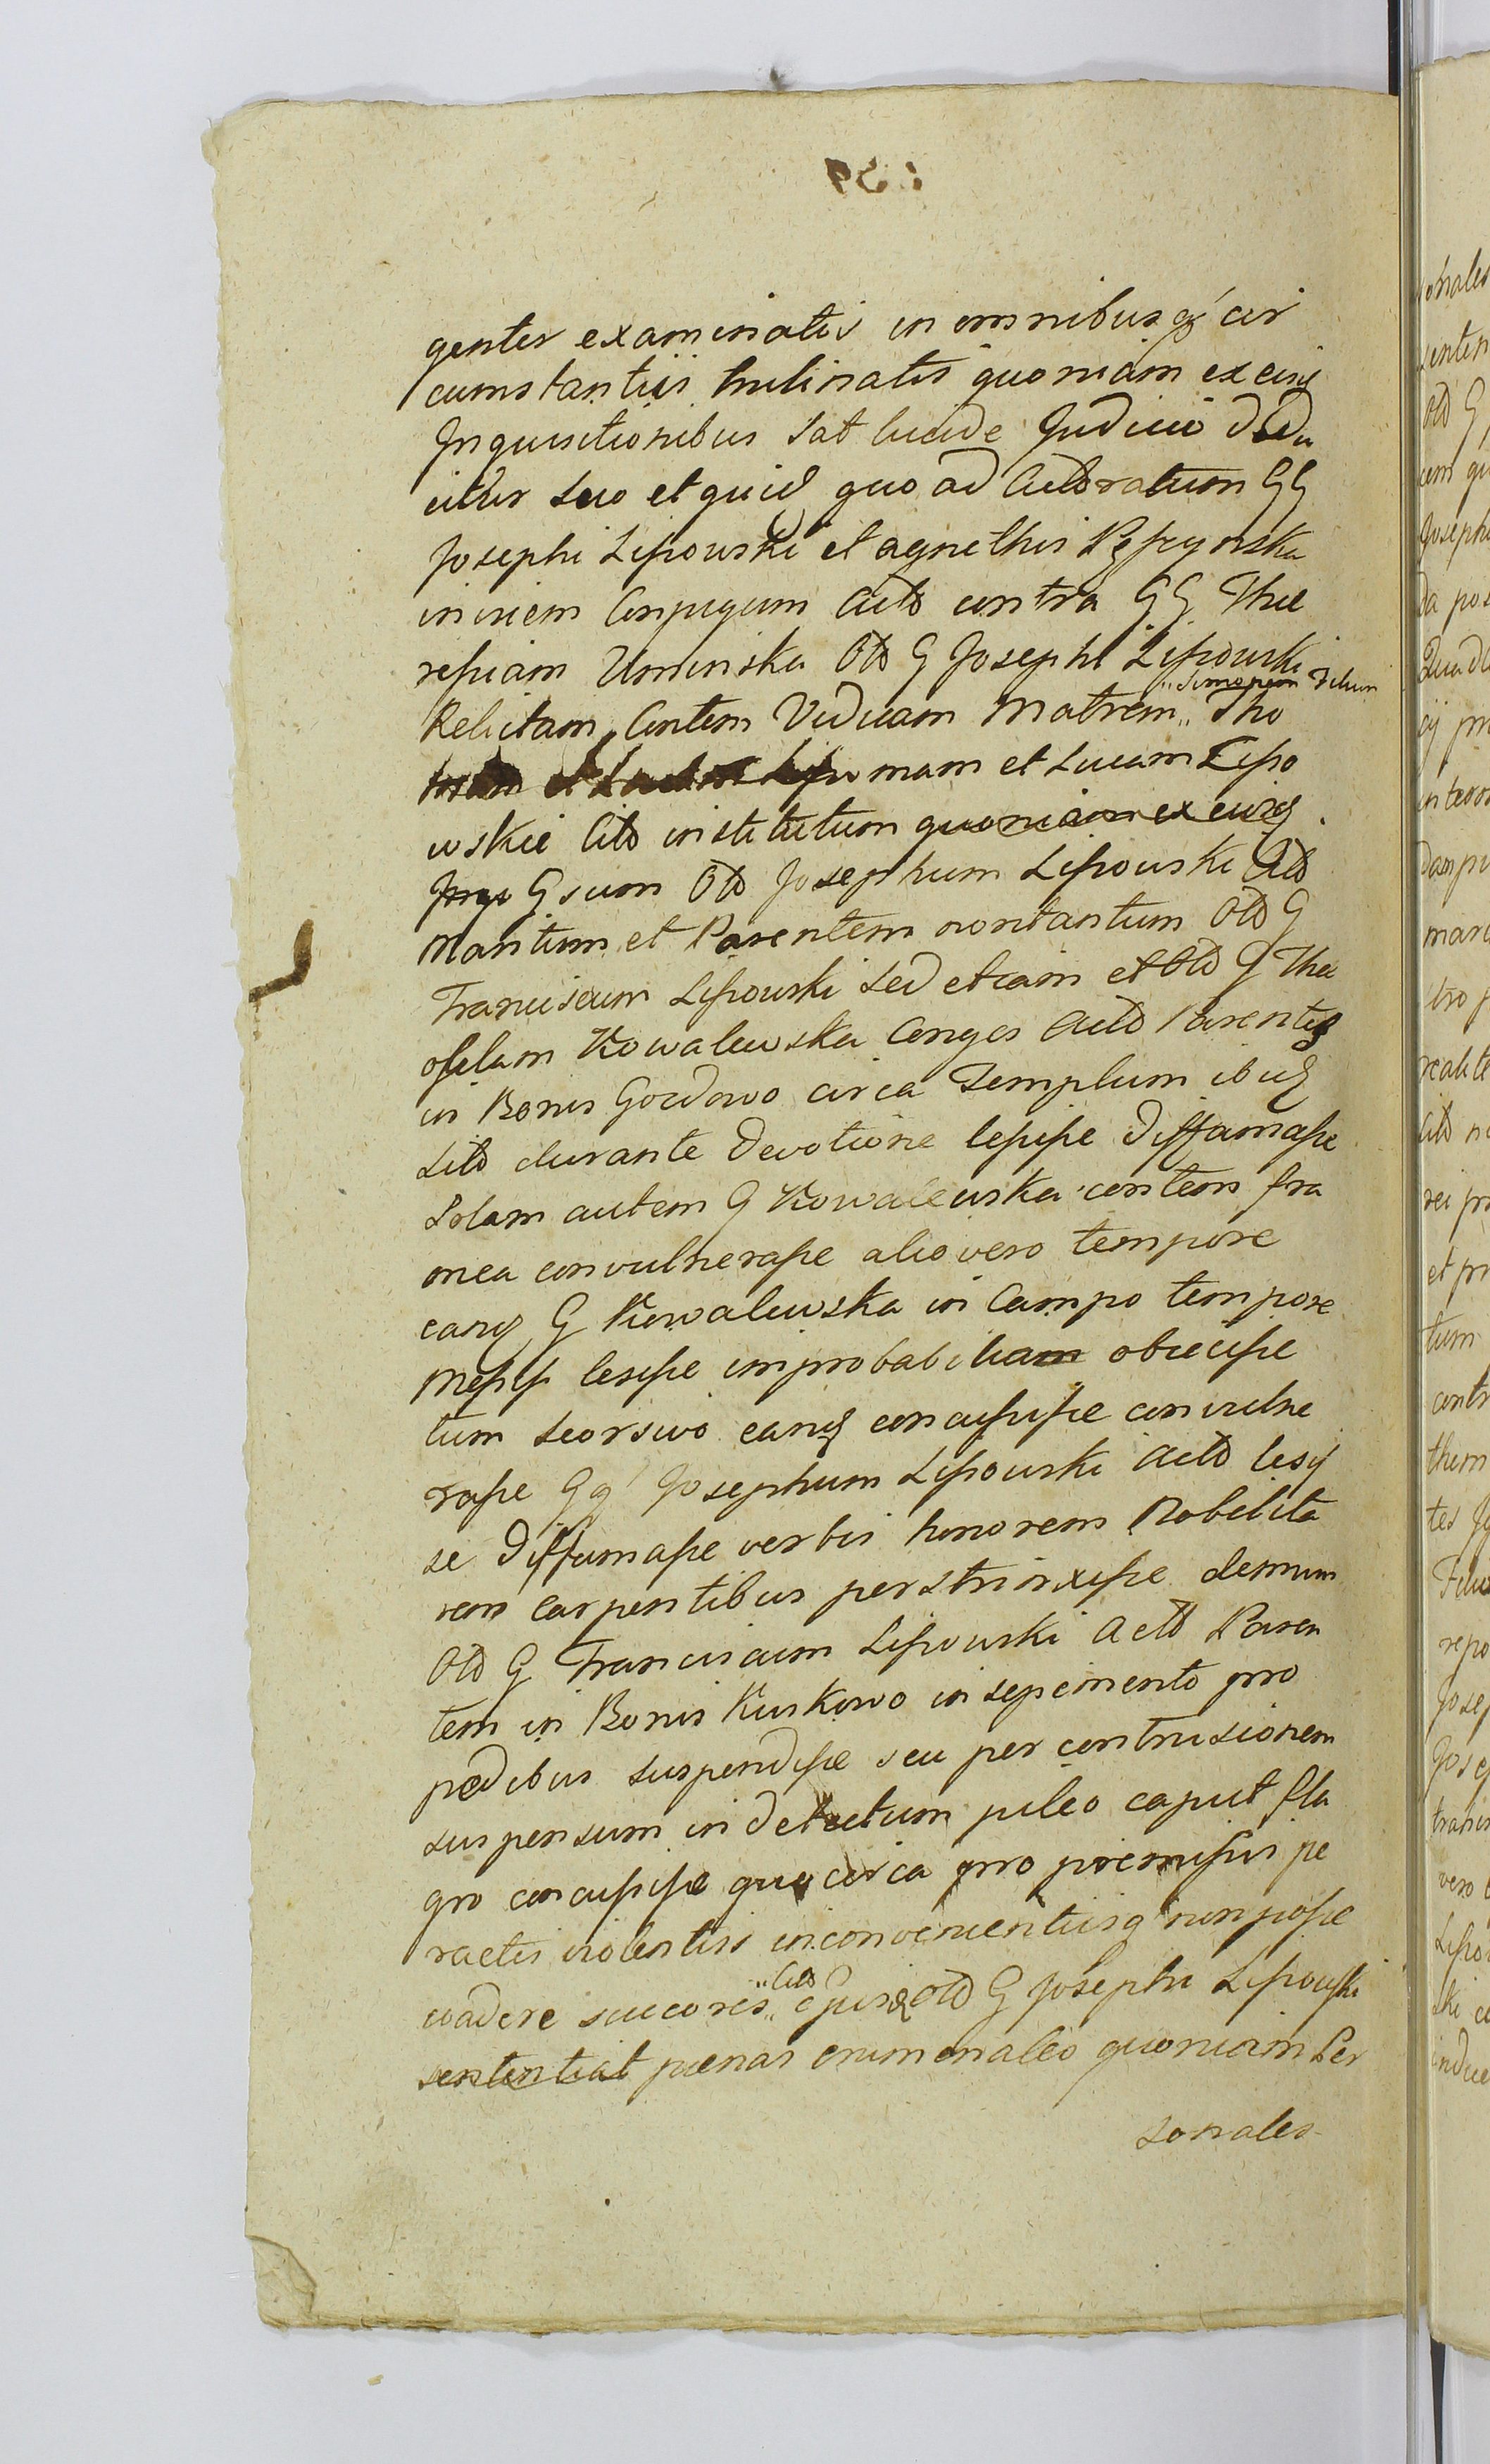 genter examinatis in omnibusq cir
cumstantiis trutinatis quoniam ex eisq
Inquisitionibus Sat lucide Judicio dedu
citur suo et quid quo ad Actoratum GG
Josephi Lipowski et agnethis
invicem Conjugum Acto contra GG The
resiam Uminska Oto G Josephi Lipowski
Relictam, Contem Viduam Matrem,, Tho
,,Simonem Filium
mam et Lucam Lipo
wskie Cito institutum quoniam ex eisq
Gsum Oto Josephum Lipowski Acto
Maritum et Parentem nontantum Oto G
Franciscum Lipowski Sed etiam et Oto G The
ofilam Kowalewska Conges Acto Parentes
in Bonis Gozdowo circa Templum ibiq
Sito durante Devotione lesisse Diffamasse
Solam autem G Kowalewska contem fra
mea convulnerasse alio vero tempore
eanq G Kowalewska in Campo tempore
Messis lesisse improbabiliam obiecisse
tum seorsivo eanq concussisse convulne
rasse Gq Josephum Lipowski Acto lesis
se Diffamasse verbis honorem Nobilita
rem Carpentibus perstrinxisse demum
Oto G Franciscum Lipowski Acto Paren
tem in Bonis Kuskowo in sepimento pro
pedibus suspendisse seu per contrusionem
suspensum in detectum pileo caput fla
gro concussisse quo circa pro premissis pe
ractis violentiis inconvenientiisq non posse
evadere succores,, ejusq Oto G Josephi Lipowski
,,Cito
sententiat poenas criminales quoniam Per
sonales